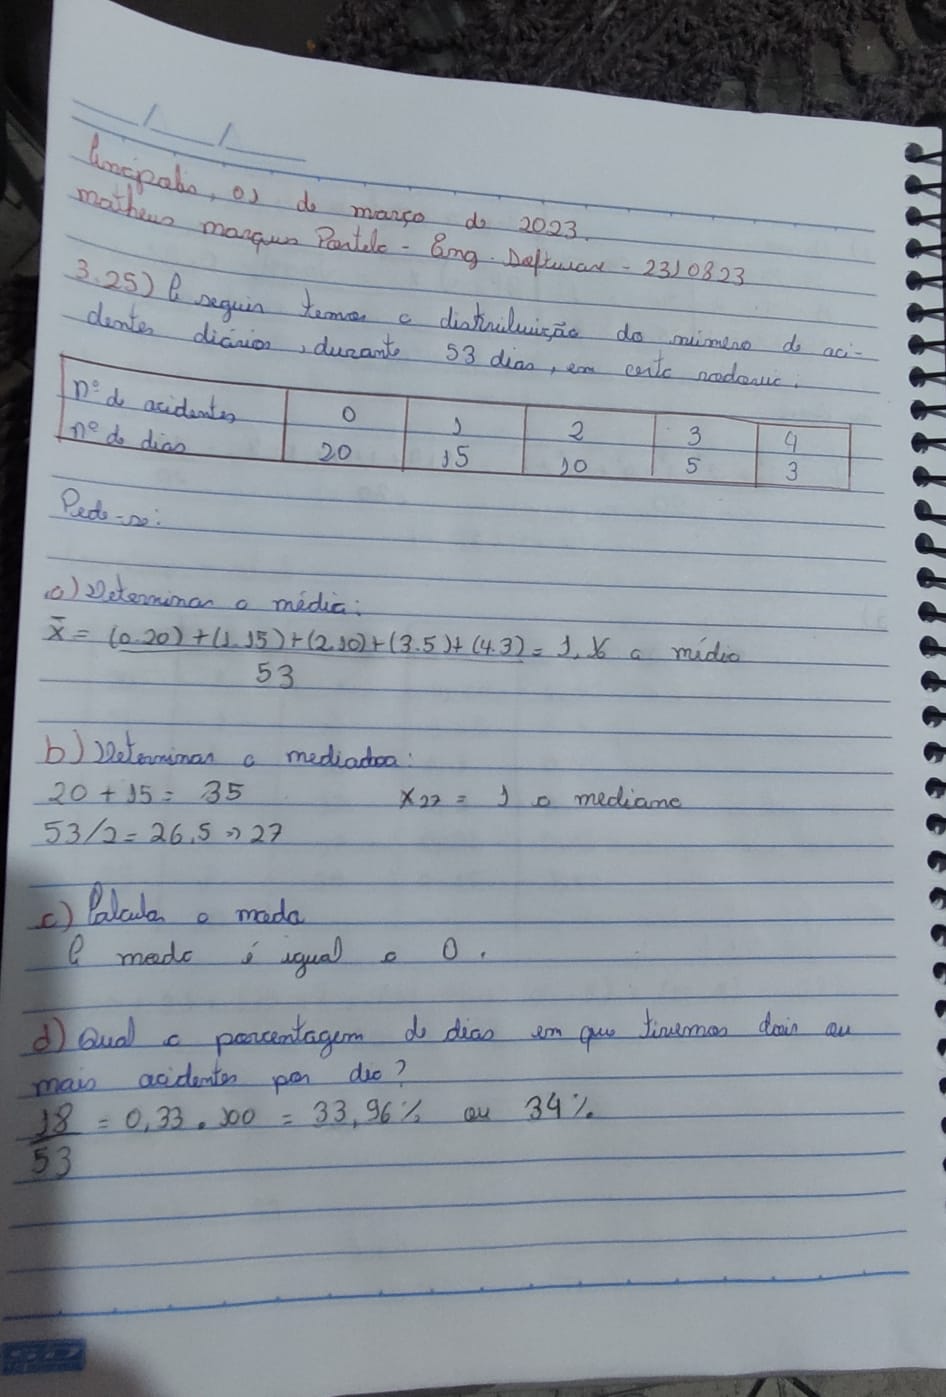 Anápolis, 01 de março de 2023.
Matheus Marques Portela - Eng. Software - 2310823
3.25) A seguir temos a distribuição do número de aci-
dentes diários, durante 53 dias, em certa rodovia:
nº de acidentes 0 1 2 3 4
nº de dias 20 15 10 5 3
Pede-se:
a) Determinar a média:
x̄ = (0.20) + (1.15) + (2.10) + (3.5) + (4.3) = 1,16 a média
53
b) Determinar a mediadoa:
20 + 15 = 35 x27 = 1 a mediana
53/2 = 26,5 => 27
c) Calcular a moda
A moda é igual a 0.
d) Qual a porcentagem de dias em que tivemos dois ou
mais acidentes por dia?
18 = 0,33 . 100 = 33,96% ou 34%
53